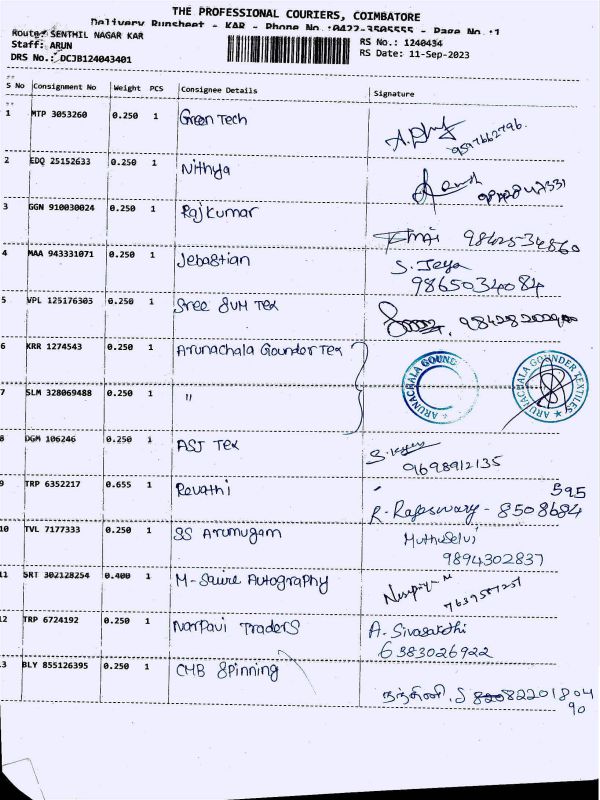 THE PROFESSIONAL COURIERS, COIMBATORE
Delivery Runsheet - KAR - Phone No.:0422-3505555 - Page No.:1
Route: SENTHIL NAGAR KAR
Staff: ARUN
DRS No.: DCJB124043401
RS No.: 1240434
RS Date: 11-Sep-2023
S No Consignment No Weight PCS Consignee Details Signature
1 MTP 3053260 0.250 1 Green Tech
9597662796
2 EDQ 25152633 0.250 1 Nithya
3 GGN 910030024 0.250 1 Rajkumar
9842534860
4 MAA 943331071 0.250 1 Jebastian S. Jeya
9865034084
5 VPL 125176303 0.250 1 Sree SVM Tex
6 KRR 1274543 0.250 1 Arunachala Gounder Tex
ARUNACHALA GOUND
ARUNACHALA GOUNDER TEXTILES
7 SLM 328069488 0.250 1 "
8 DGM 106246 0.250 1 ASJ Tex
9698912135
9 TRP 6352217 0.655 1 Revathi 595
R. Rajeswary - 8508684
10 TVL 7177333 0.250 1 SS Arumugam Muthuselvi
9894302837
11 SRT 302128254 0.400 1 M-Saure Autography
7639587257
12 TRP 6724192 0.250 1 Narpavi Traders A. Sivasakthi
6383026922
13 BLY 855126395 0.250 1 CMB Spinning
நந்தினி. S 82201804
90